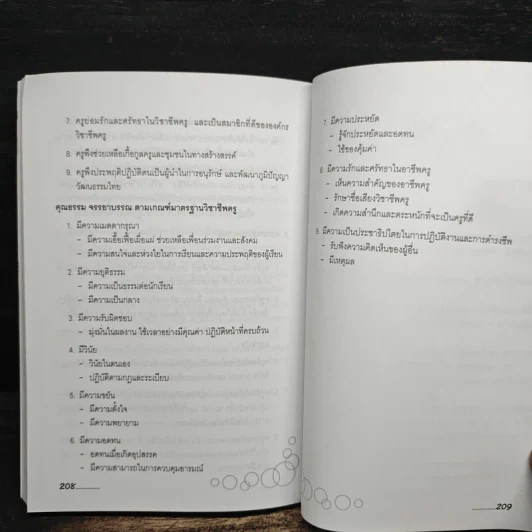 7. ครูย่อมรักและศรัทธาในวิชาชีพครู และเป็นสมาชิกที่ดีขององค์กร
วิชาชีพครู
8. ครูพึงช่วยเหลือเกื้อกูลครูและชุมชนในทางสร้างสรรค์
9. ครูพึงประพฤติปฏิบัติตนเป็นผู้นำในการอนุรักษ์ และพัฒนาภูมิปัญญา
วัฒนธรรมไทย
คุณธรรม จรรยาบรรณ ตามเกณฑ์มาตรฐานวิชาชีพครู
1. มีความเมตตากรุณา
- มีความเอื้อเฟื้อเผื่อแผ่ ช่วยเหลือเพื่อนร่วมงานและสังคม
- มีความสนใจและห่วงใยในการเรียนและความประพฤติของผู้เรียน
2. มีความยุติธรรม
- มีความเป็นธรรมต่อนักเรียน
- มีความเป็นกลาง
3. มีความรับผิดชอบ
- มุ่งมั่นในผลงาน ใช้เวลาอย่างมีคุณค่า ปฏิบัติหน้าที่ครบถ้วน
4. มีวินัย
- วินัยในตนเอง
- ปฏิบัติตามกฎและระเบียบ
5. มีความขยัน
- มีความตั้งใจ
- มีความพยายาม
6. มีความอดทน
- อดทนเมื่อเกิดอุปสรรค
- มีความสามารถในการควบคุมอารมณ์
208
7. มีความประหยัด
- รู้จักประหยัดและอดทน
- ใช้ของคุ้มค่า
8. มีความรักและศรัทธาในอาชีพครู
- เห็นความสำคัญของอาชีพครู
- รักษาชื่อเสียงวิชาชีพครู
- เกิดความสำนึกและตระหนักที่จะเป็นครูที่ดี
9. มีความเป็นประชาธิปไตยในการปฏิบัติงานและการดำรงชีพ
- รับฟังความคิดเห็นของผู้อื่น
- มีเหตุผล
209